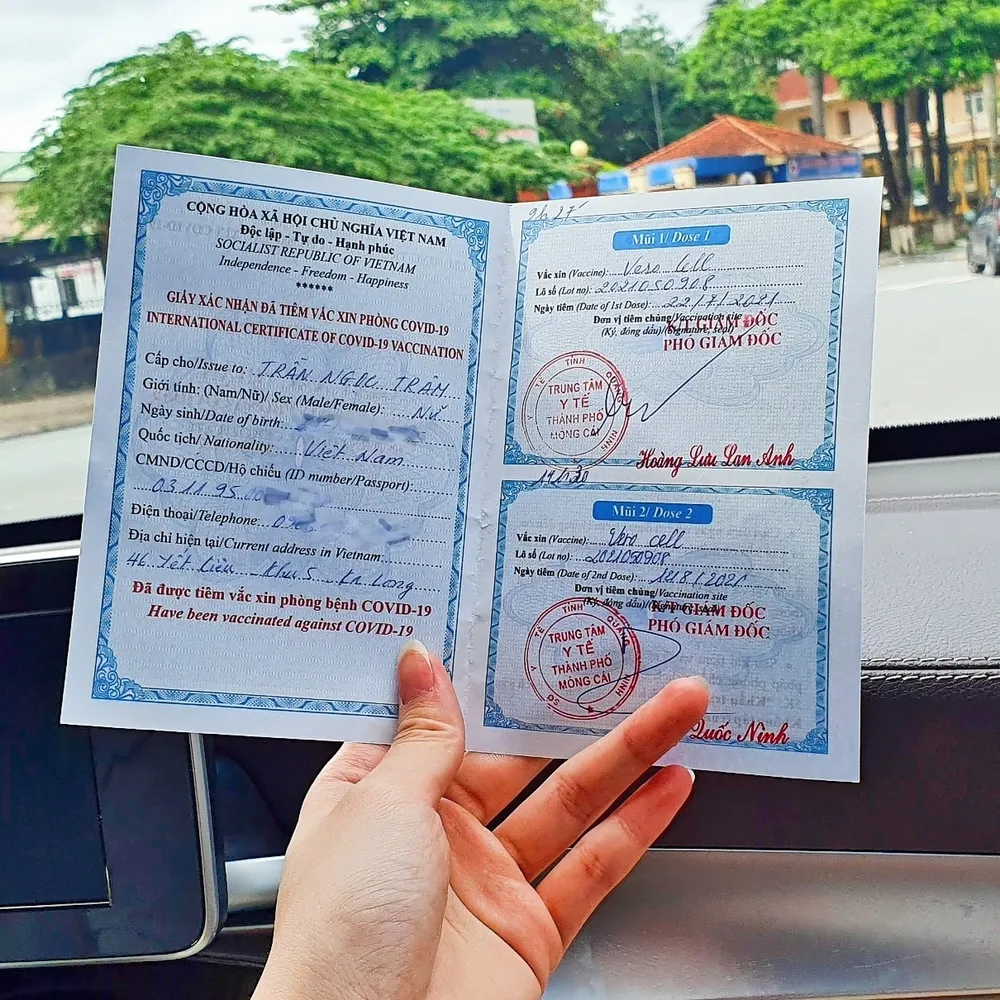 CỘNG HÒA XÃ HỘI CHỦ NGHĨA VIỆT NAM
Độc lập - Tự do - Hạnh phúc
SOCIALIST REPUBLIC OF VIETNAM
Independence - Freedom - Happiness
******
GIẤY XÁC NHẬN ĐÃ TIÊM VẮC XIN PHÒNG COVID-19
INTERNATIONAL CERTIFICATE OF COVID-19 VACCINATION
Cấp cho/Issue to: TRẦN NGỌC TRÂM
Giới tính: (Nam/Nữ)/ Sex (Male/Female): Nữ
Ngày sinh/Date of birth:
Quốc tịch/ Nationality: Việt Nam
CMND/CCCD/Hộ chiếu (ID number/Passport):
031195
Điện thoại/Telephone: 09
Địa chỉ hiện tại/Current address in Vietnam:
46 Yết Kiêu Khu 5 Ka Long
Đã được tiêm vắc xin phòng bệnh COVID-19
Have been vaccinated against COVID-19
Mũi 1/ Dose 1
Vắc xin (Vaccine): Vero Cell
Lô số (Lot no): 2021050908
Ngày tiêm (Date of 1st Dose): 22/7/2021
Đơn vị tiêm chủng/Vaccination site
(Ký, đóng dấu)/(Signature, seal)
KT GIÁM ĐỐC
PHÓ GIÁM ĐỐC
SỞ Y TẾ TỈNH QUẢNG NINH
TRUNG TÂM
Y TẾ
THÀNH PHỐ
MÓNG CÁI
Hoàng Lưu Lan Anh
Mũi 2/ Dose 2
Vắc xin (Vaccine): Vero cell
Lô số (Lot no): 2021050908
Ngày tiêm (Date of 2nd Dose): 12/8/2021
Đơn vị tiêm chủng/Vaccination site
(Ký, đóng dấu)/(Signature, seal)
KT GIÁM ĐỐC
PHÓ GIÁM ĐỐC
SỞ Y TẾ TỈNH QUẢNG NINH
TRUNG TÂM
Y TẾ
THÀNH PHỐ
MÓNG CÁI
Quốc Ninh